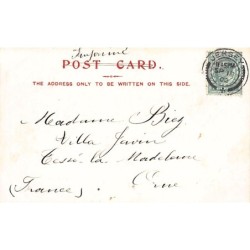 Imprimé
POST CARD.
THE ADDRESS ONLY TO BE WRITTEN ON THIS SIDE.
Madame Biez
Villa Javin
Tessé-la-Madeleine
(France) Orne